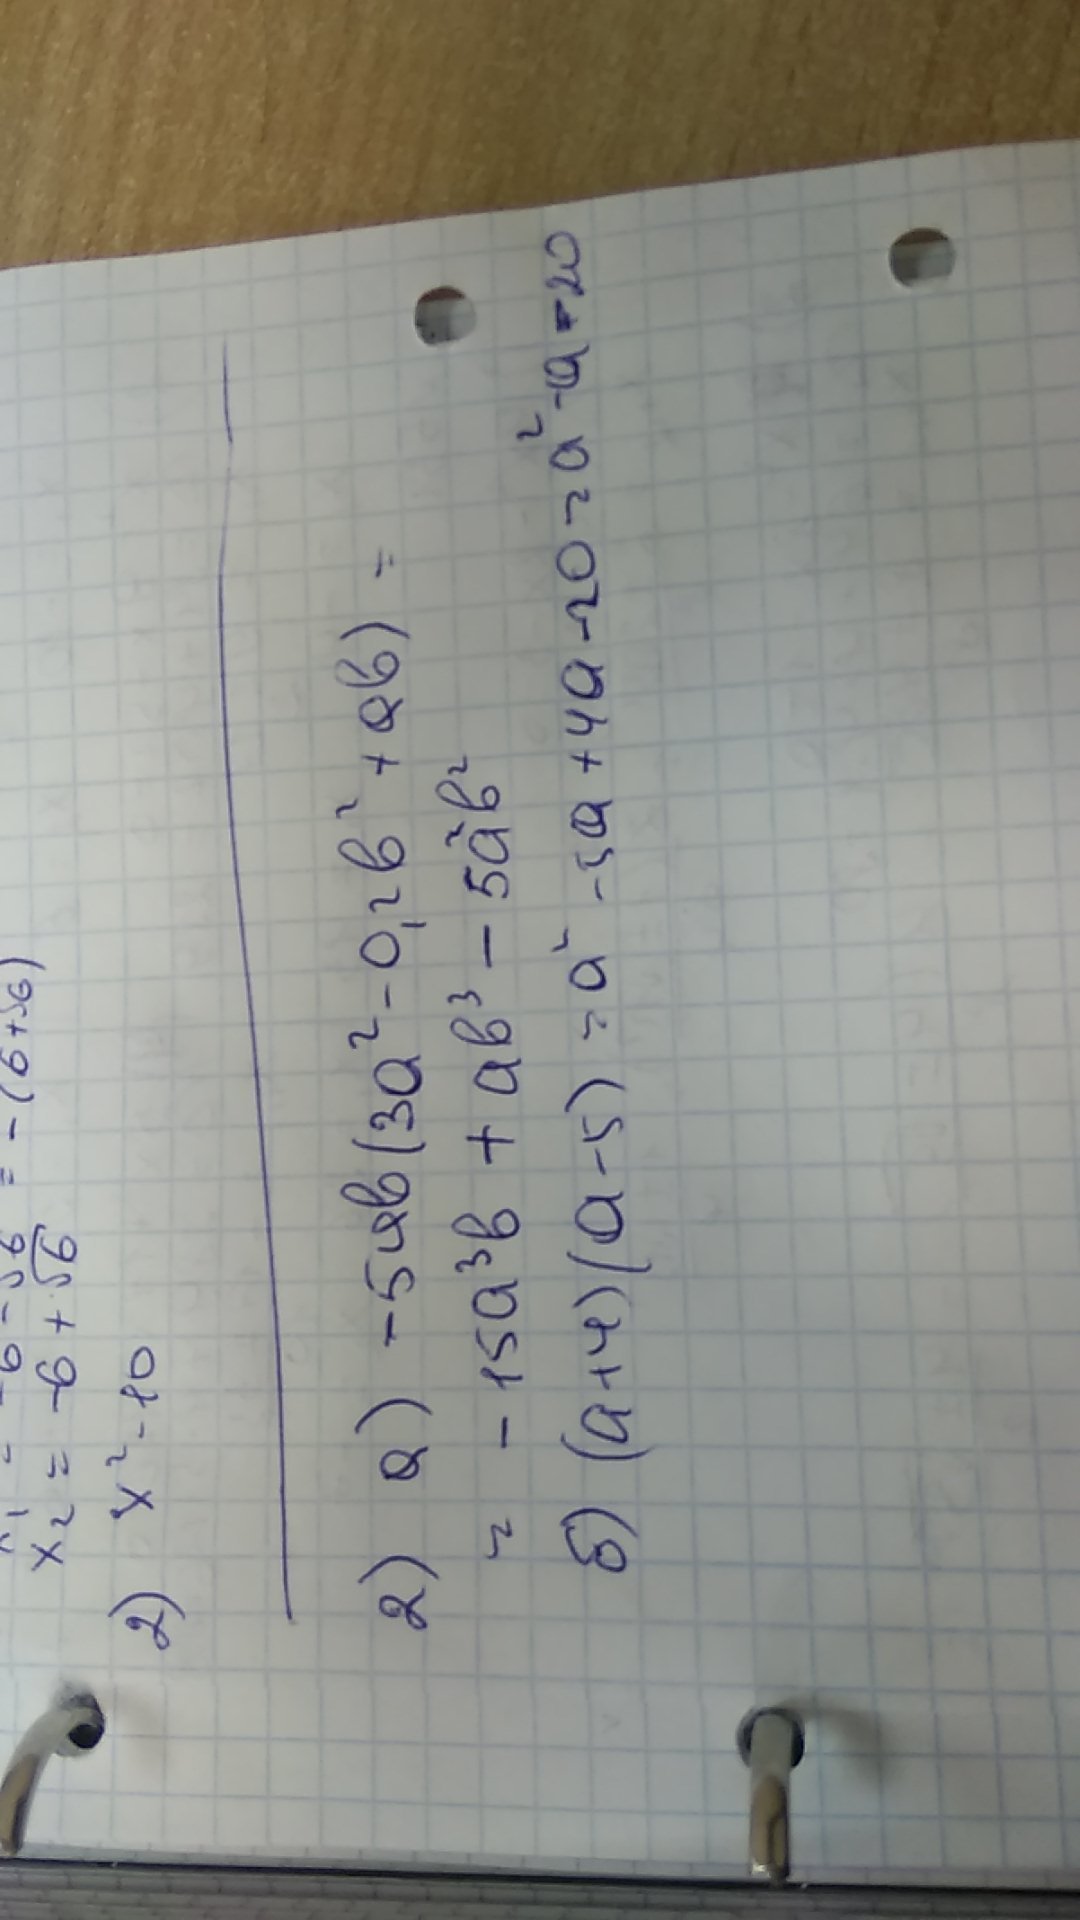 x₂ = -6 + √6
2) x² - 10
2) а) -5ab(3a² - 0,2b² + ab) =
= -15a³b + ab³ - 5a²b²
б) (a+4)(a-5) = a² - 5a + 4a - 20 = a² - a - 20